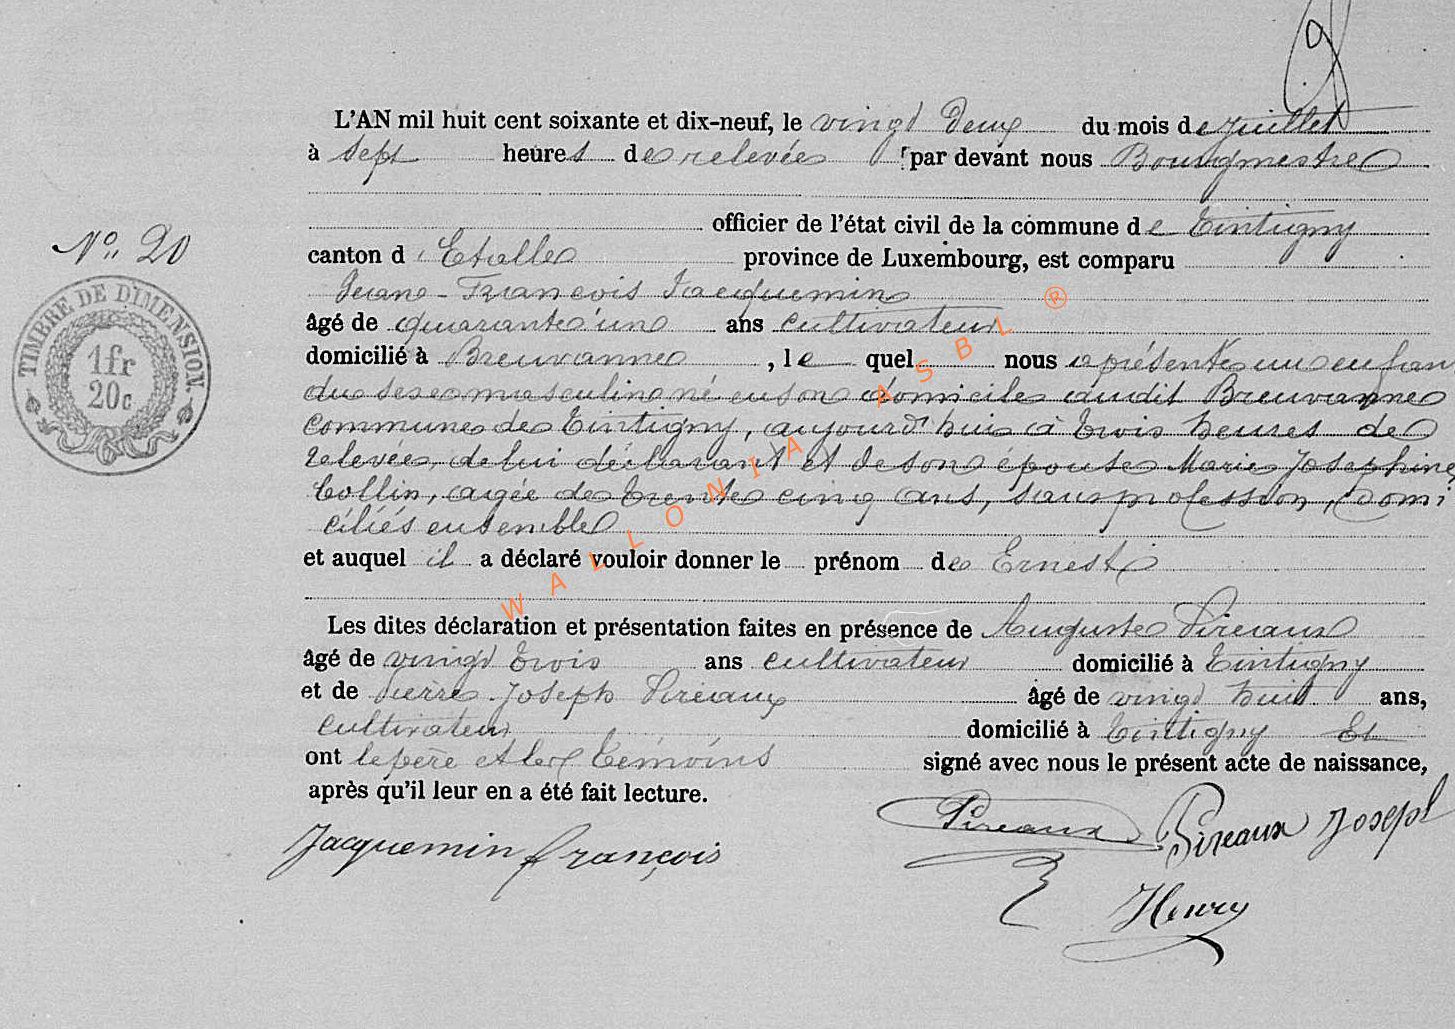 L'AN mil huit cent soixante et dix-neuf, le vingt deux du mois de Juillet
à sept heures de relevée par devant nous Bourgmestre
officier de l'état civil de la commune de Tintigny
No 20
canton d'Etalle province de Luxembourg, est comparu
Jean-François Jacquemin
TIMBRE DE DIMENSION.
1fr
20c
âgé de quarante un ans cultivateur
domicilié à Breuvanne, lequel nous a présenté un enfant
du sexe masculin né en son domicile audit Breuvanne
commune de Tintigny, aujourd'hui à trois heures de
relevée, de lui déclarant et de son épouse Marie Josephine
Collin, agée de trente cinq ans, sans profession, domi-
ciliés ensemble
et auquel il a déclaré vouloir donner le prénom de Ernest
Les dites déclaration et présentation faites en présence de Auguste Pireaux
âgé de vingt trois ans cultivateur domicilié à Tintigny
et de Pierre Joseph Pireaux âgé de vingt huit ans,
cultivateur domicilié à Tintigny Et
ont le père et les témoins signé avec nous le présent acte de naissance,
après qu'il leur en a été fait lecture.
Jacquemin françois
Pireaux Pireaux Joseph
Henry
WALLONIA ASBL ®